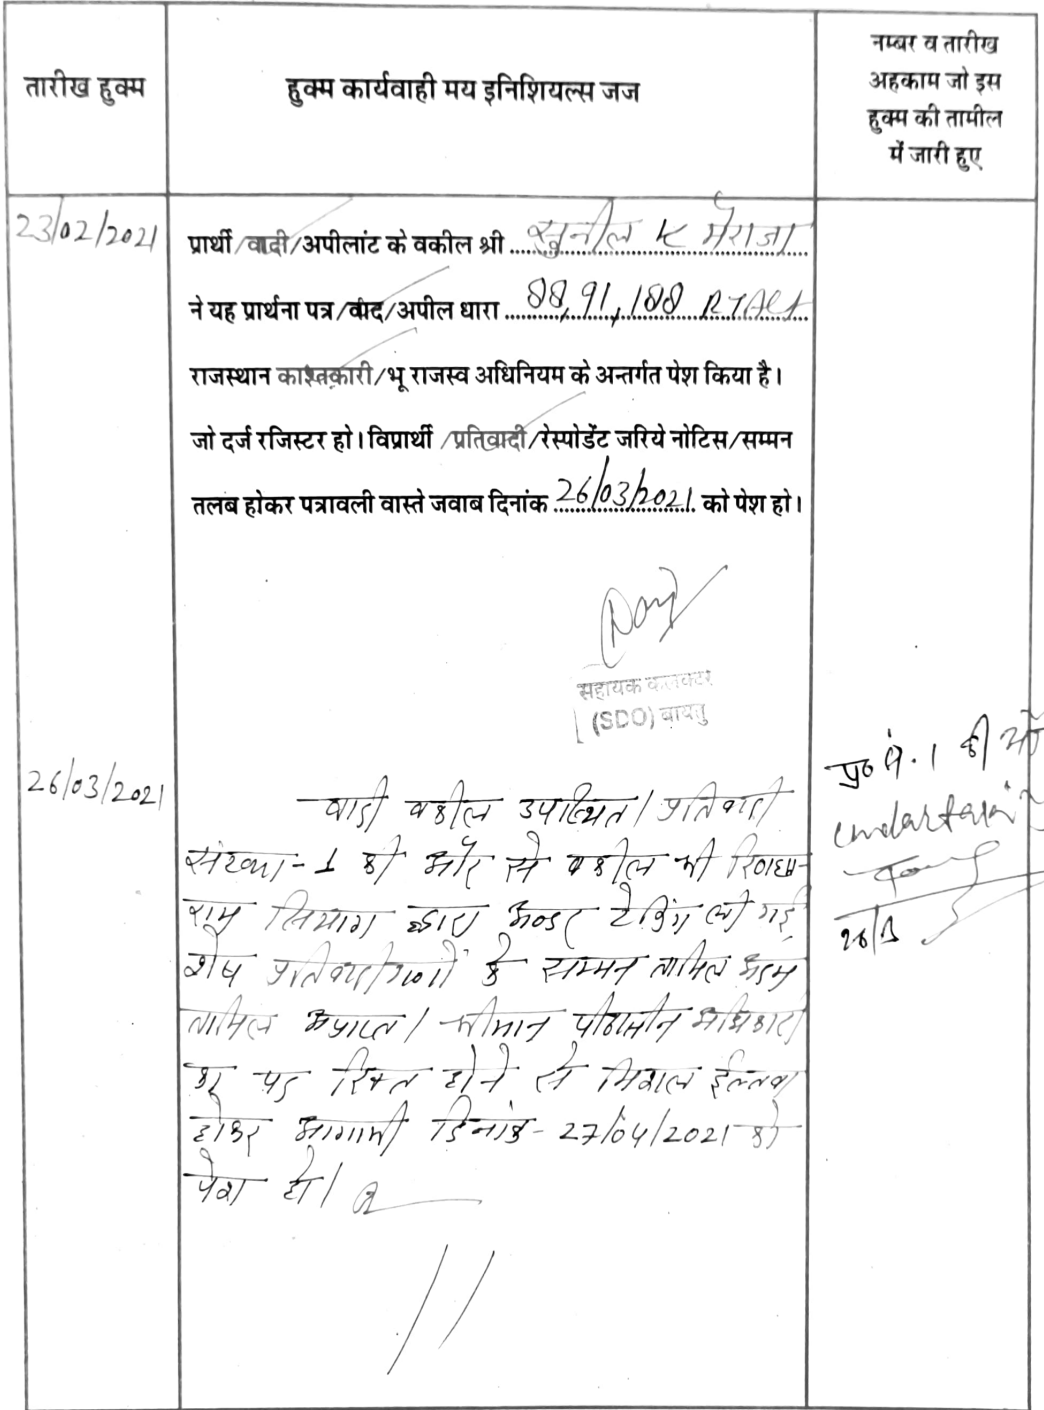 तारीख हुक्म
हुक्म कार्यवाही मय इनिशियल्स जज
नम्बर व तारीख
अहकाम जो इस
हुक्म की तामील
में जारी हुए
23/02/2021
प्रार्थी/वादी/अपीलांट के वकील श्री सुनील K मेराजा
ने यह प्रार्थना पत्र/वाद/अपील धारा 88,91,188 RTAct
राजस्थान काश्तकारी/भू राजस्व अधिनियम के अन्तर्गत पेश किया है।
जो दर्ज रजिस्टर हो। विप्रार्थी/प्रतिवादी/रेस्पोडेंट जरिये नोटिस/सम्मन
तलब होकर पत्रावली वास्ते जवाब दिनांक 26/03/2021 को पेश हो।
सहायक कलक्टर
(SDO) बायतु
26/03/2021
वादी वकील उपस्थित। प्रतिवादी
संख्या-1 की ओर से वकील श्री
राम सियाग द्वारा अन्डर टेकिंग ली गई
शेष प्रतिवादीगणों के सम्मन तामिल अदम
तामिल अप्राप्त। श्रीमान पीठासीन अधिकारी
का पद रिक्त होने से मिशल ईल्तवा
होकर आगामी दिनांक-27/04/2021 को
पेश हो।
प्र० सं.1 की ओ